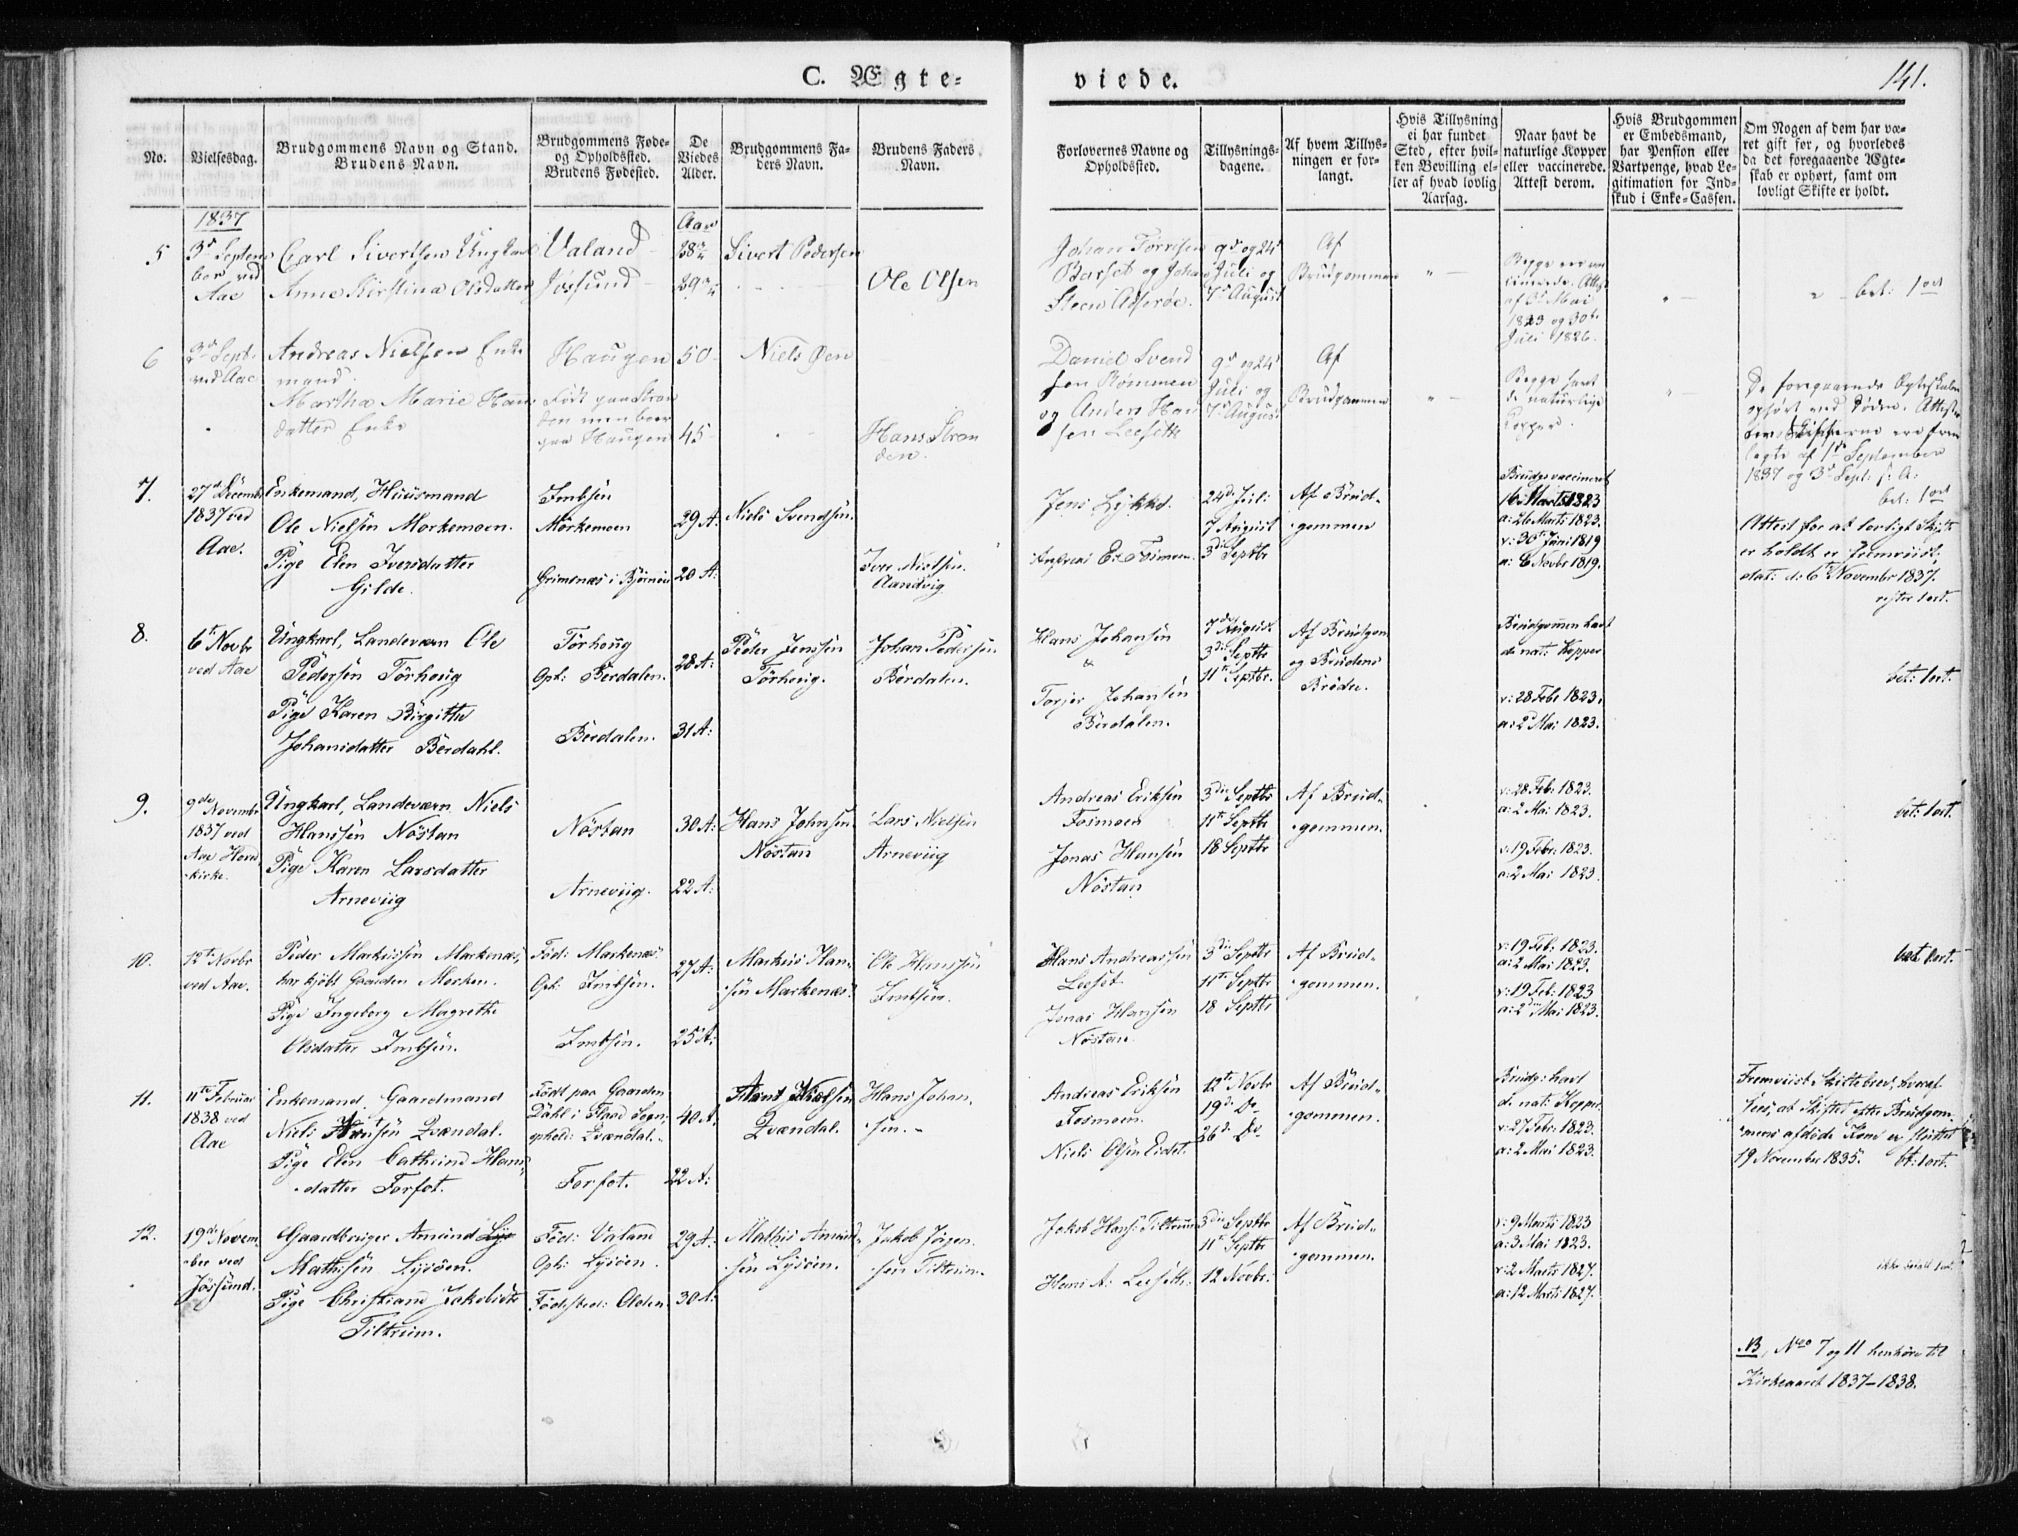 C. Ægte-
viede.
141.
No.
Vielsesdag.
Brudgommens Navn og Stand.
Brudens Navn.
Brudgommens Føde-
og Opholdssted.
Brudens Fødested.
De
Viedes
Alder.
Brudgommens Fa-
ders Navn.
Brudens Faders
Navn.
Forlovernes Navne og
Opholdssted.
Tillysnings-
dagene.
Af hvem Tillys-
ningen er for-
langt.
Hvis Tillysning
ei har fundet
Sted, efter hvil-
ken Bevilling el-
ler af hvad lovlig
Aarsag.
Naar havt de
naturlige Kopper
eller vaccinerede.
Attest derom.
Hvis Brudgommen
er Embedsmand,
har Pension eller
Vartpenge, hvad Le-
gitimation for Ind-
skud i Enke-Cassen.
Om Nogen af dem har væ-
ret gift før, og hvorledes
da det foregaaende Ægte-
skab er ophørt, samt om
lovligt Skifte er holdt.
1837
Aar
5
3d Septem
ber ved
Aae
Carl Sivertsen Ungkarl
Anne Kirstina Olsdatter
Valand
Jøssund
Sivert Pedersen
Ole Olsen
Johan
Barset og Johan
Steen
9d og 24d
Juli og
7d August
Af
Brudgommen
Begge ere vac
cinerede. Attest
af 3d Mai
1823 og 30te
Juli 1826.
bet: 1 ort
6
3d Sept.
ved Aae
Andreas Nielsen Enke
mand.
Martha Marie Hans
datter Enke
Haugen
Født paa Stran
den men boer
paa Haugen
50
45
Niels Øen
Hans Stran
den.
Daniel Svend
sen Rømmen
og Anders Han
sen Leeseth
9d og 24d
Juli og
7d August
Af
Brudgommen
Begge havt
de naturlige
Kopper.
De foregaaende Egteskaber
ophørt ved Døden. Attester
om Skifterne ere frem
lagte af 1ste September
1837 og 3d Sept. s. A.
bet: 1 ort
7.
27d Decembr
1837 ved
Aae.
Enkemand, Huusmand
Ole Nielsen Morkemoen.
Pige Elen Iversdatter
Gilde.
Imbsen
Mørkemoen
Grimsnæs i Bjørnør
29 A.
20 A:
Niels Svendsen.
Iver Nielsen
Aandvig
Jens Lykke
Andreas Er. Fosmoen.
24d Juli
7 August
3die Septbr
Af Brud-
gommen
Brudgs vaccineret
16 Marts 1823
a: 26 Marts 1823.
v: 30te Juni 1819
a: 6 Novbr 1819.
Attest for at lovligt Skifte
er holdt er fremviist,
dat: d: 6te November 1837.
rester 1 ort.
8.
6te Novbr
ved Aae
Ungkarl, Landeværn Ole
Pedersen Tørhoug
Pige Karen Birgitte
Johansdatter Berdahl.
Tørhoug
Oph: Berdalen.
Berdalen.
28 A:
31 A:
Peder Jenssen
Tørhoug.
Johan Pedersen
Berdalen.
Hans Johansen
&
Torjer Johansen
Berdalen.
7de August
3die Septbr
11te Septbr.
Af Brudgom
og Brudens
Broder.
Brudgommen havt
de nat: Kopper
v: 28 Febr 1823.
a: 2 Mai 1823.
bet: 1 ort.
9.
9de Novembr
1837 ved
Aae Hoved
-kirke.
Ungkarl, Landeværn Niels
Hanssen Nøstan
Pige Karen Larsdatter
Arneviig
Nøstan
Arneviig.
30 A:
22 A:
Hans Johnsen
Nøstan
Lars Nielsen
Arneviig
Andreas Eriksen
Fosmoen
Jonas Hansen
Nøstan
3die Septbr
11te Septbr
18 Septbr
Af Brud-
gommen.
v: 28 Feb: 1823.
a: 2 Mai 1823.
v: 19 Febr: 1823.
a: 2 Mai 1823.
bet: 1 ort.
10.
12te Novbr
ved Aae.
Peder Markussen Markenæs
har kjøbt Gaarden Morken.
Pige Ingeborg Magrethe
Olsdatter Imbsen.
Fød: Markenæs
Oph: Imbsen.
Imbsen.
27 A:
25 A:
Markus Han-
sen Markenæs.
Ole Hanssen
Imbsen.
Hans Andreassen
Leeset
Jonas Hansen
Nøstan
3die Septbr
11te Septbr
18 Septbr
Af Brud-
gommen.
v: 19 Feb: 1823.
a: 2 Mai 1823.
v: 19 Feb: 1823
a: 2den Mai 1823.
bet: 1 ort.
11.
11te Februar
1838 ved
Aae
Enkemand, Gaardmand
Niels Qvændal.
Pige Elen Cathrine Hans-
datter Forfot.
Født paa Gaarden
Dahl i Flaa Sogn,
ophold: Qvændal.
Forfot.
40 A:
22 A:
Nielsen
Qvændal.
Hans Johan-
sen.
Andreas Eriksen
Fosmoen.
Niels Olsen Eidet.
12te Novbr
19de Do
26de Do
Af Brud-
gommen.
Brudg: havt
d: nat: Kopper
v: 27 Febr: 1823.
a: 2 Mai 1823.
Fremviist Skiftebrev, hvoraf
sees, at Skiftet efter Brudgom-
mens afdøde Kone er sluttet
19 November 1835. bt: 1 ort.
12.
19de Novem-
ber ved
Jøssund.
Gaardbruger Amund
Mathisen Lysøen.
Pige Christiane Jakobsdtr
Tiltrum.
Fød: Valand
Oph: Lysøen.
Fødested: Olden.
29 A:
30 A:
Mathis Amund-
sen Lysøen.
Jakob Jørgen-
sen Tiltrum.
Jakob Hans: Tiltrum
Hans A: Leeseth.
3die Septbr
11te Septbr
12 Novbr:
Af Brud-
gommen.
v: 9 Marts 1823
a: 3 Mai 1823.
v: 2 Marts 1827.
a: 12 Marts 1827.
ikke betalt 1 ort.
NB, No 7 og 11 henhøre til
Kirkeaaret 1837-1838.